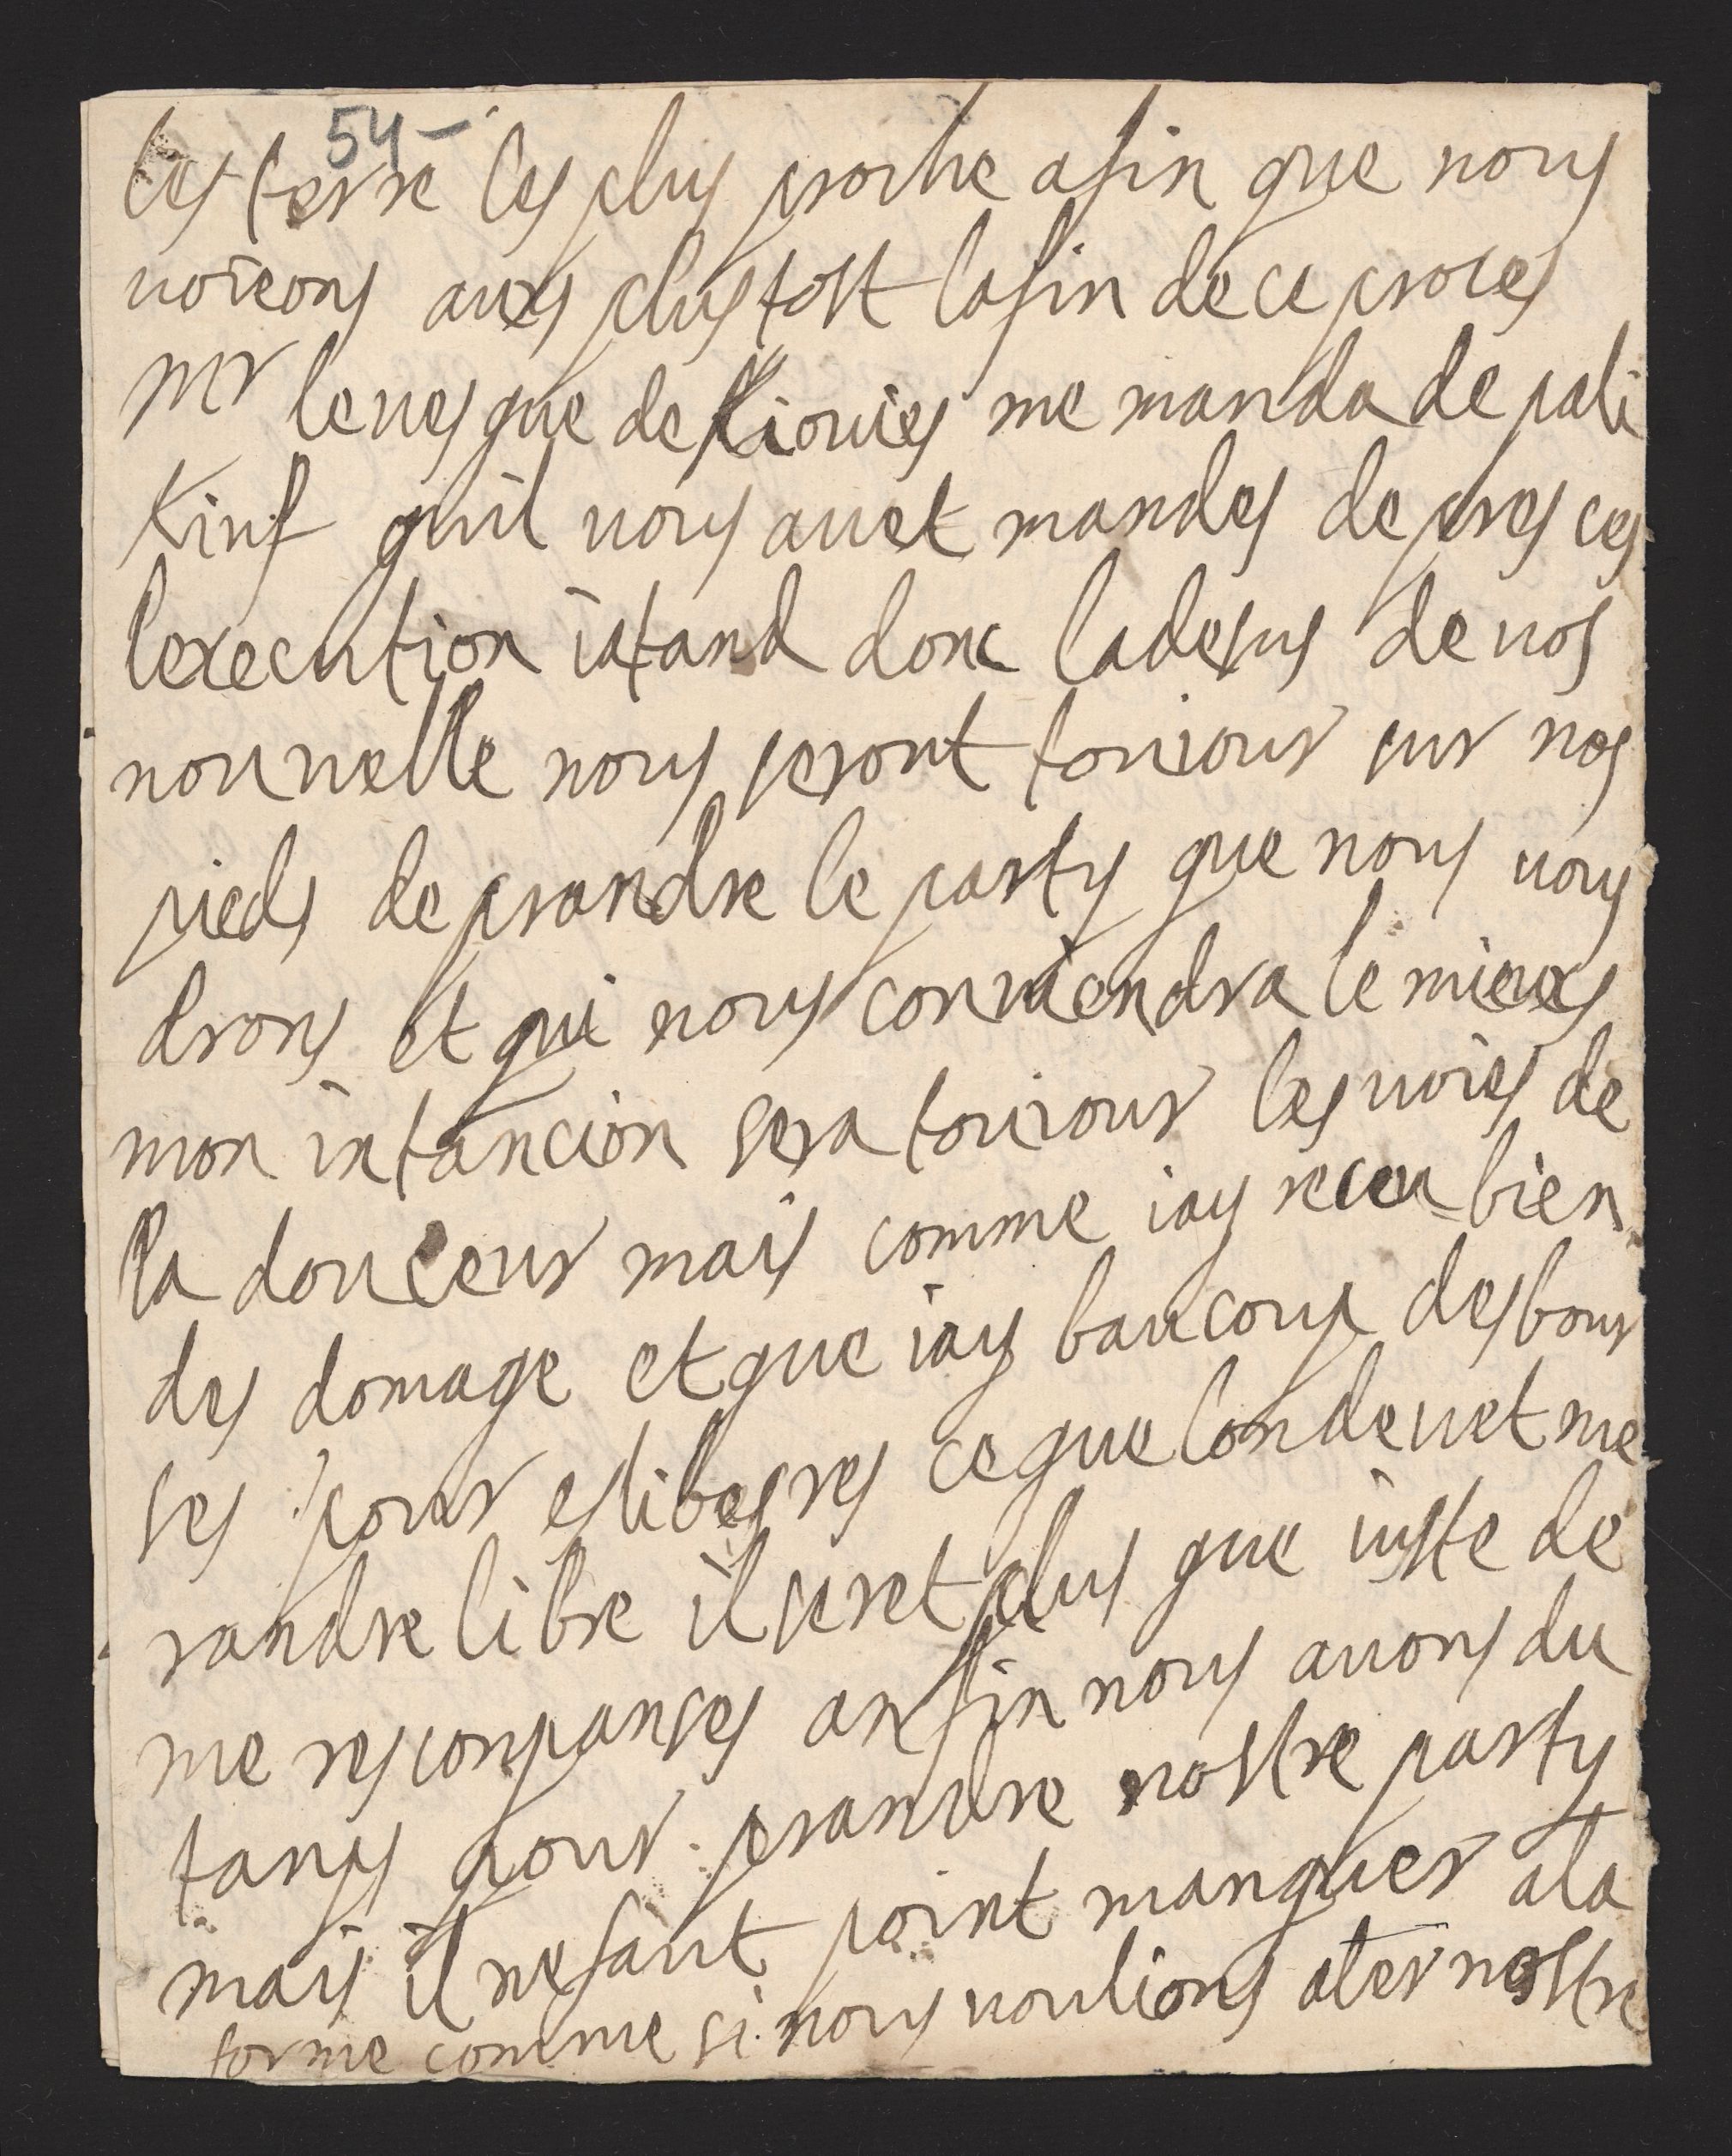 54-
les terre les plus proche afin que nous
voieons aux plustost lafin de ce proces
Mr levesque de Kiovies me manda de pali
Kinf quil vous avet mandes de pres ces
lexecution iatand donc ladesus de vos
nouvelle nous seront toujour sur nos
pieds de prandre le party que nous vous
drons et qui nous conviendra le mieux
mon intancion sera toujour les voies de
la douceur mais comme iay receu bien
des domage et que iay baucoup desbour
ses pour eslibesres ce que londevet me
randre libre il seret plus que iuste de
me resconpanses anfin nous avons du
tanps pour prandre nostre party
mais il nefaut point manquer ala
forme comme si nous voulions aler nostre